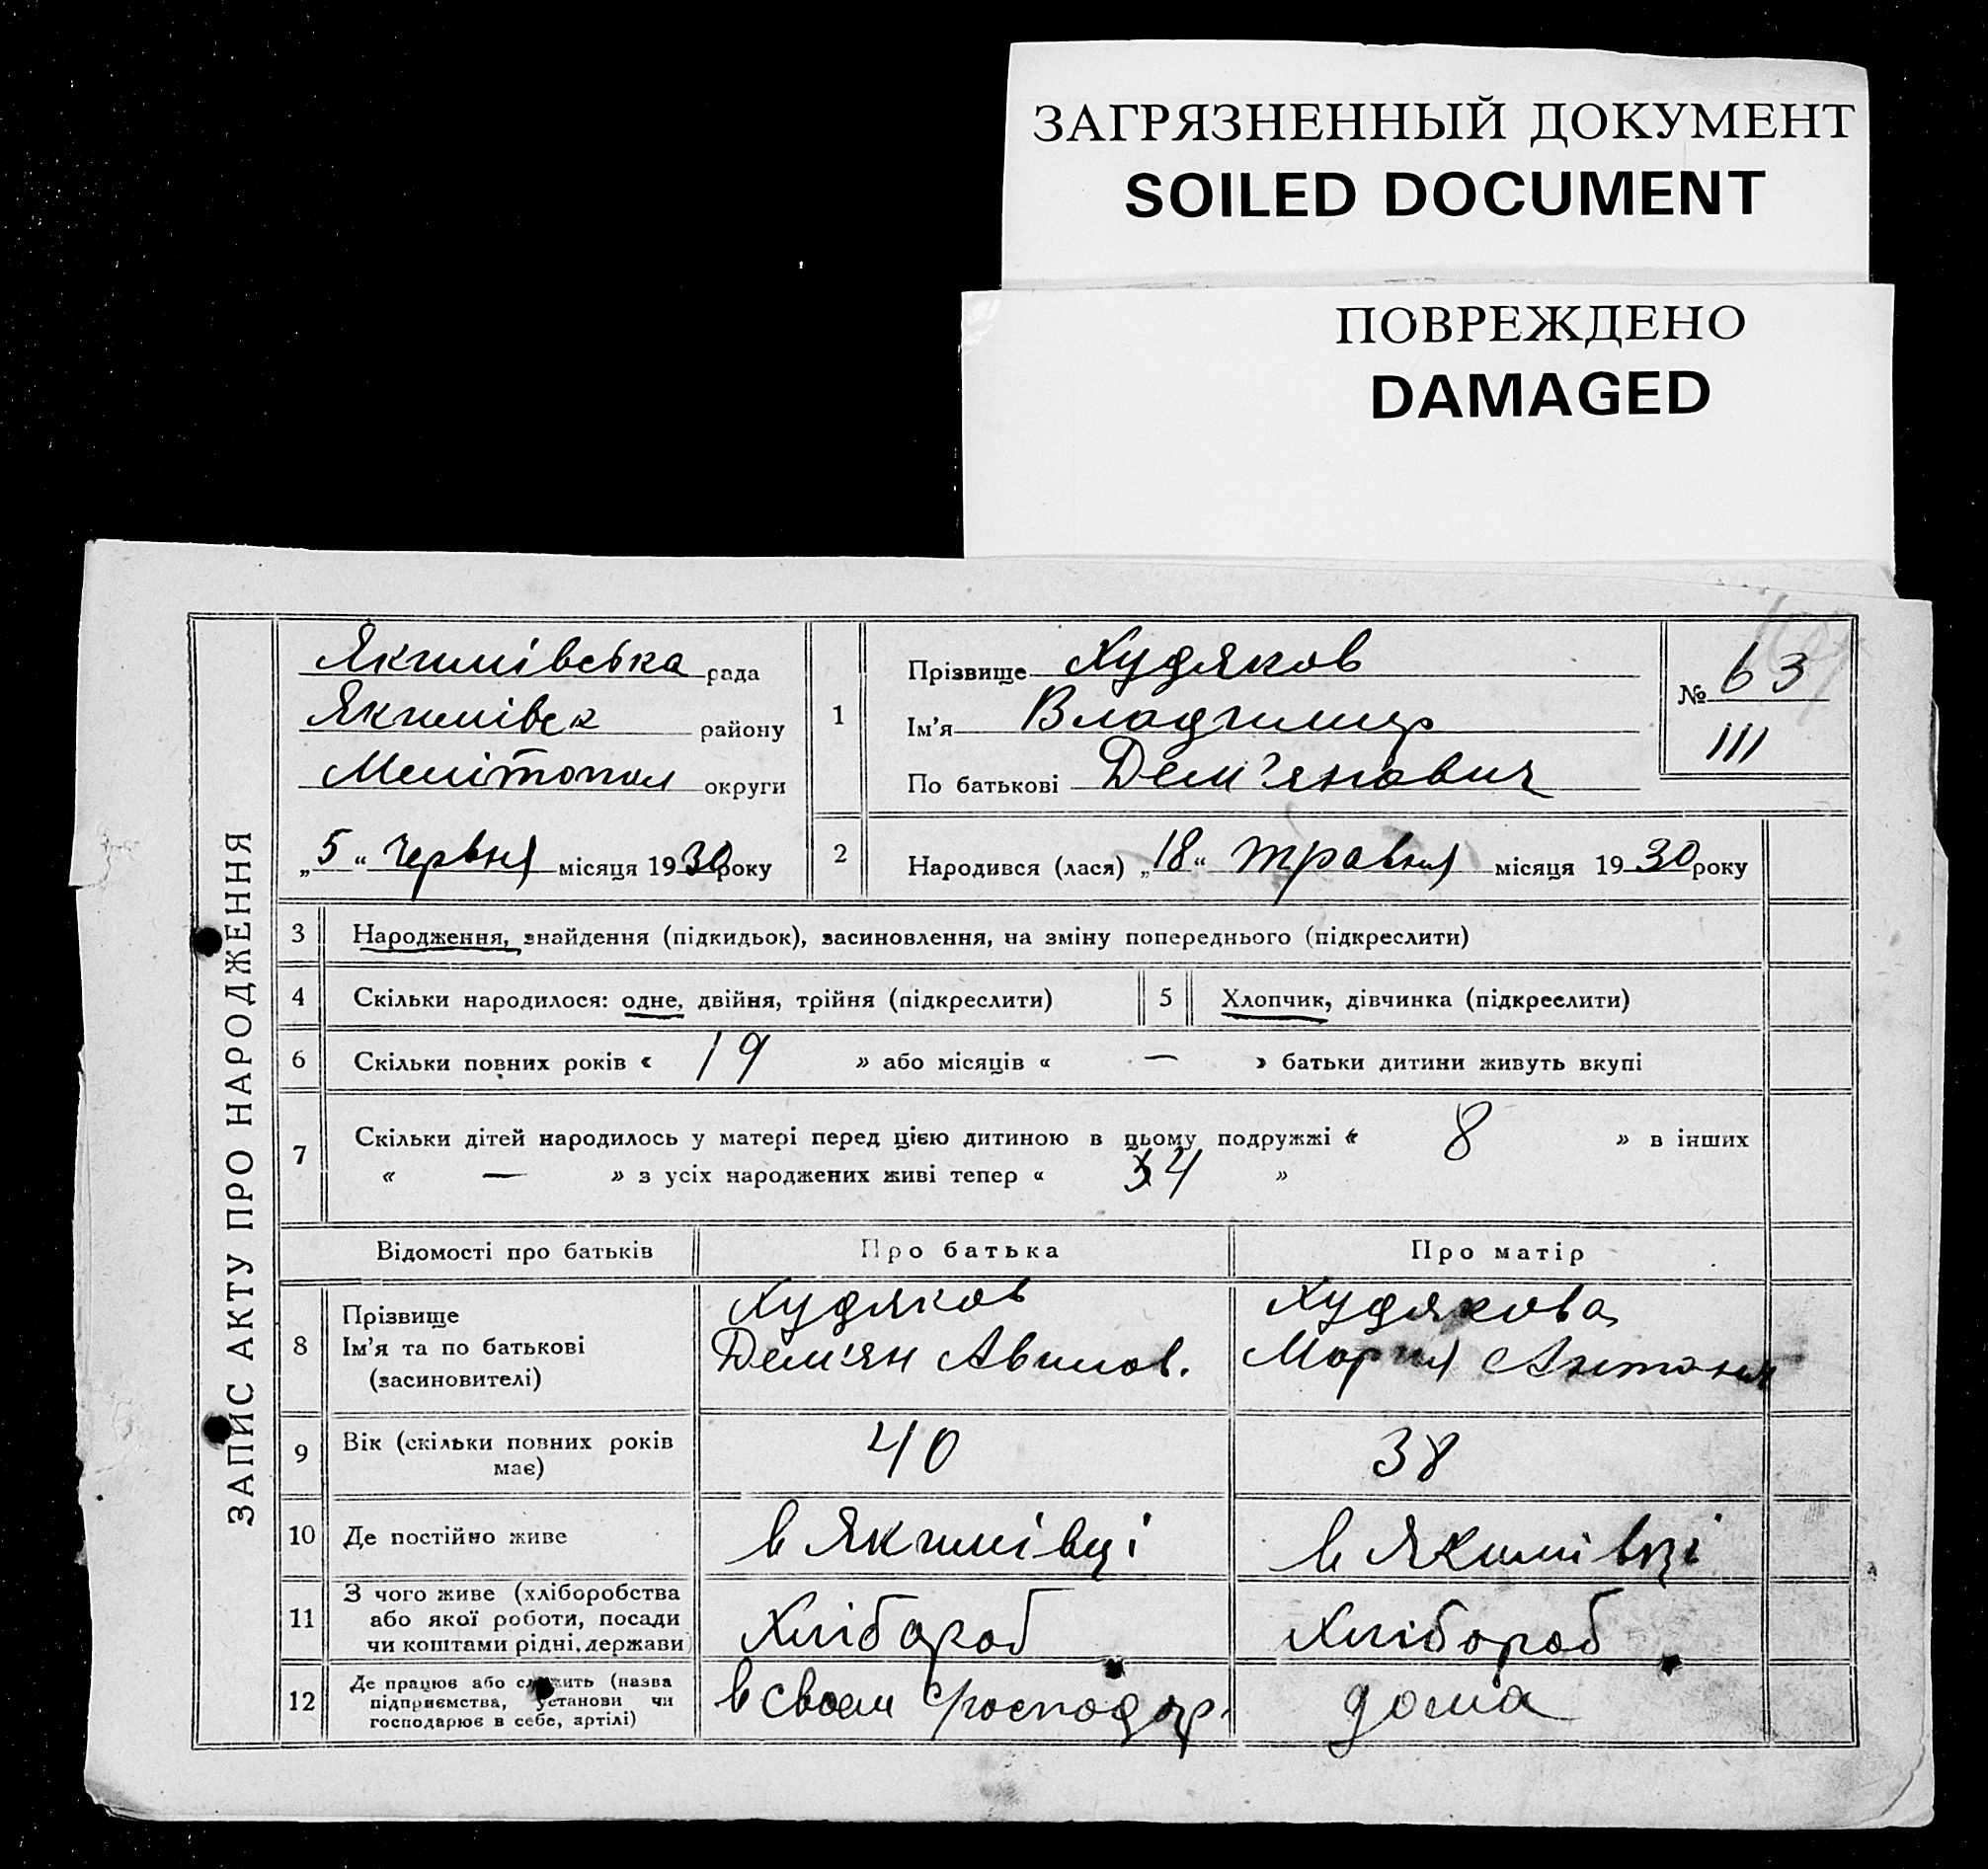 ЗАГРЯЗНЕННЫЙ ДОКУМЕНТ
SOILED DOCUMENT
ПОВРЕЖДЕНО
DAMAGED
ЗАПИС АКТУ ПРО НАРОДЖЕННЯ
Якимівська рада
Якимівськ району
Мелітопол округи
„5“ червня місяця 1930 року
1
Прізвище Худяков
Ім'я Владимир
По батькові Дем'янович
№ 63
III
2 Народився (лася) „18“ травня місяця 1930 року
3 Народження, знайдення (підкидьок), засиновлення, на зміну попереднього (підкреслити)
4 Скільки народилося: одне, двійня, трійня (підкреслити) 5 Хлопчик, дівчинка (підкреслити)
6 Скільки повних років « 19 » або місяців « — » батьки дитини живуть вкупі
7 Скільки дітей народилось у матері перед цією дитиною в цьому подружжі « 8 » в інших
« — » з усіх народжених живі тепер « 4 »
Відомості про батьків Про батька Про матір
8 Прізвище Худяков Худякова
Ім'я та по батькові Дем'ян Мария
(засиновителі)
9 Вік (скільки повних років має) 40 38
10 Де постійно живе в Якимівці в Якимівці
11 З чого живе (хліборобства
або якої роботи, посади
чи коштами рідні, держави Хлібороб Хлібороб
12 Де працює або служить (назва
підприємства, установи чи
господарює в себе, артілі) в своем господар. дома